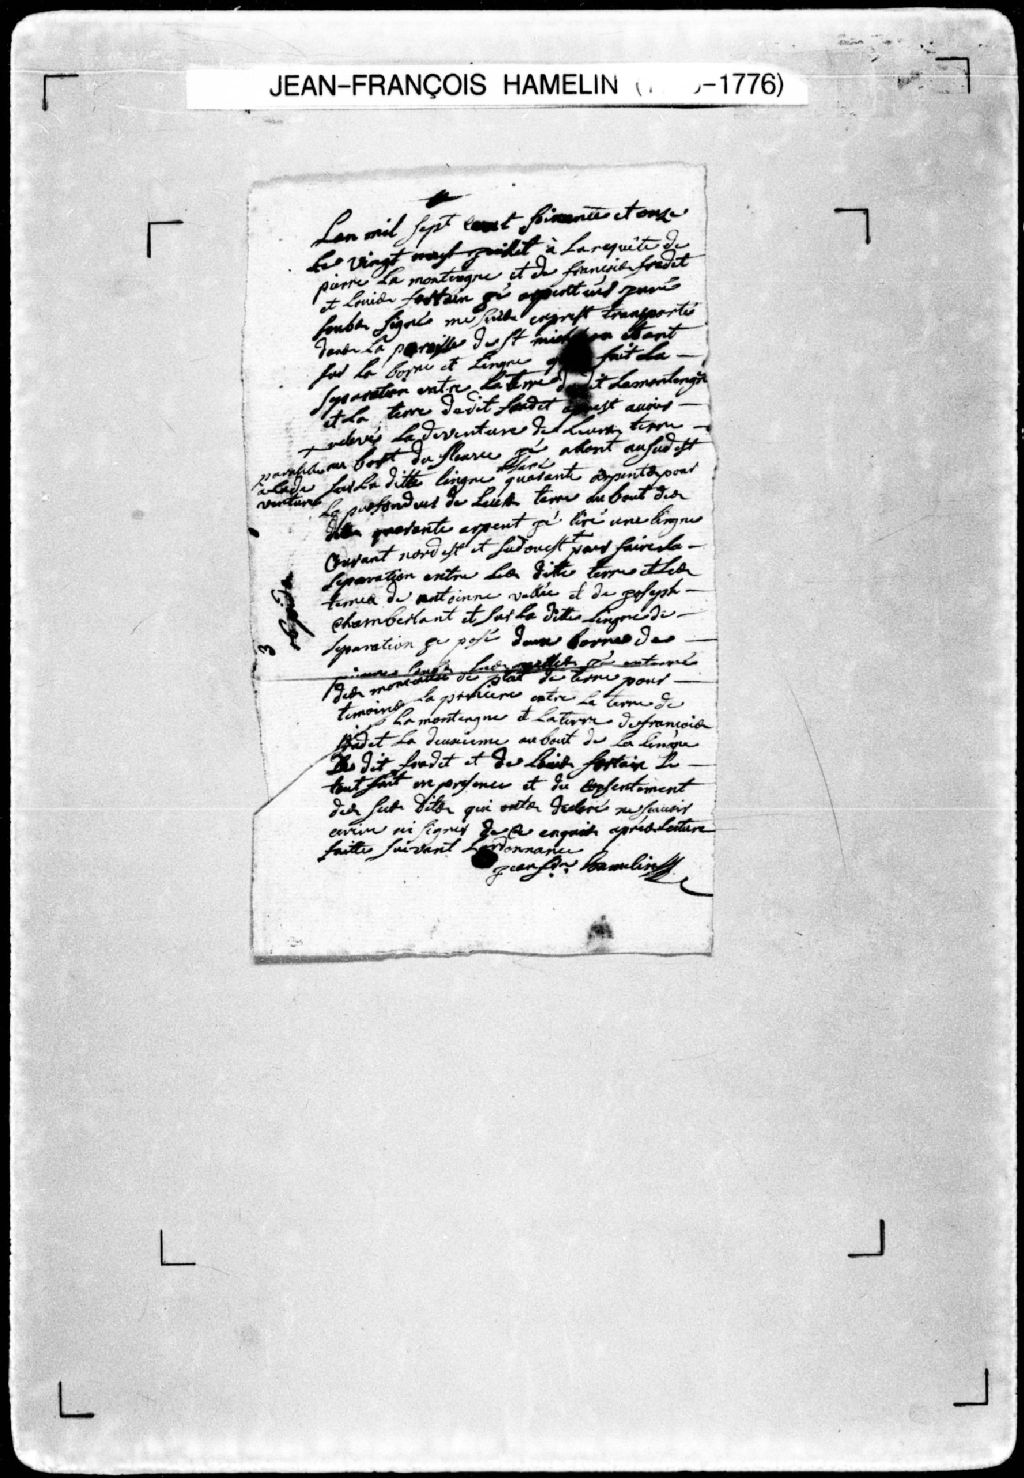 JEAN-FRANÇOIS HAMELIN ( -1776)
Lan mil sept cent soixante et onze
Le vingt neuf juillet à La requête de
pierre La montagne et de francois fredet
et Louis fortain gé arpenteur juré
soubs signé me suis exprest transporté
dans La paroisse de St michel ou étant
sur La borne et Lingne qui fait La
separation entre La terre du dit Lamontagne
et La terre dudit fredet apprest avoir
relevés La deventure de Leurs terre
parallelle a La de venture
au bort du fleuve gé alent au sud est
sur La ditte lingne mesuré quarant arpents pour
La profondeur de Leurs terre au bout des
dits quarante arpent gé tiré une lingne
Courant nord est et sudouest pour faire La
separation entre Les ditte terre et Les
terres de antoinne vallée et de joseph
chamberlant et sur La ditte Lingne de
separation ge posé deux bornes de
gé enterré
des morceaux de plat de terre pour
temoins La premiere entre La terre de
La montagne et La terre de francois
fredet La deuxieme au bout de La Lingne
du dit fredet et de Louis fortain Le
tout fait en presence et du consentement
des sus dits qui ont declaré ne savoir
ecrire ni signer de ce enquis après Lecture
faitte suivant Lordonnance
jean frs hamelin
3